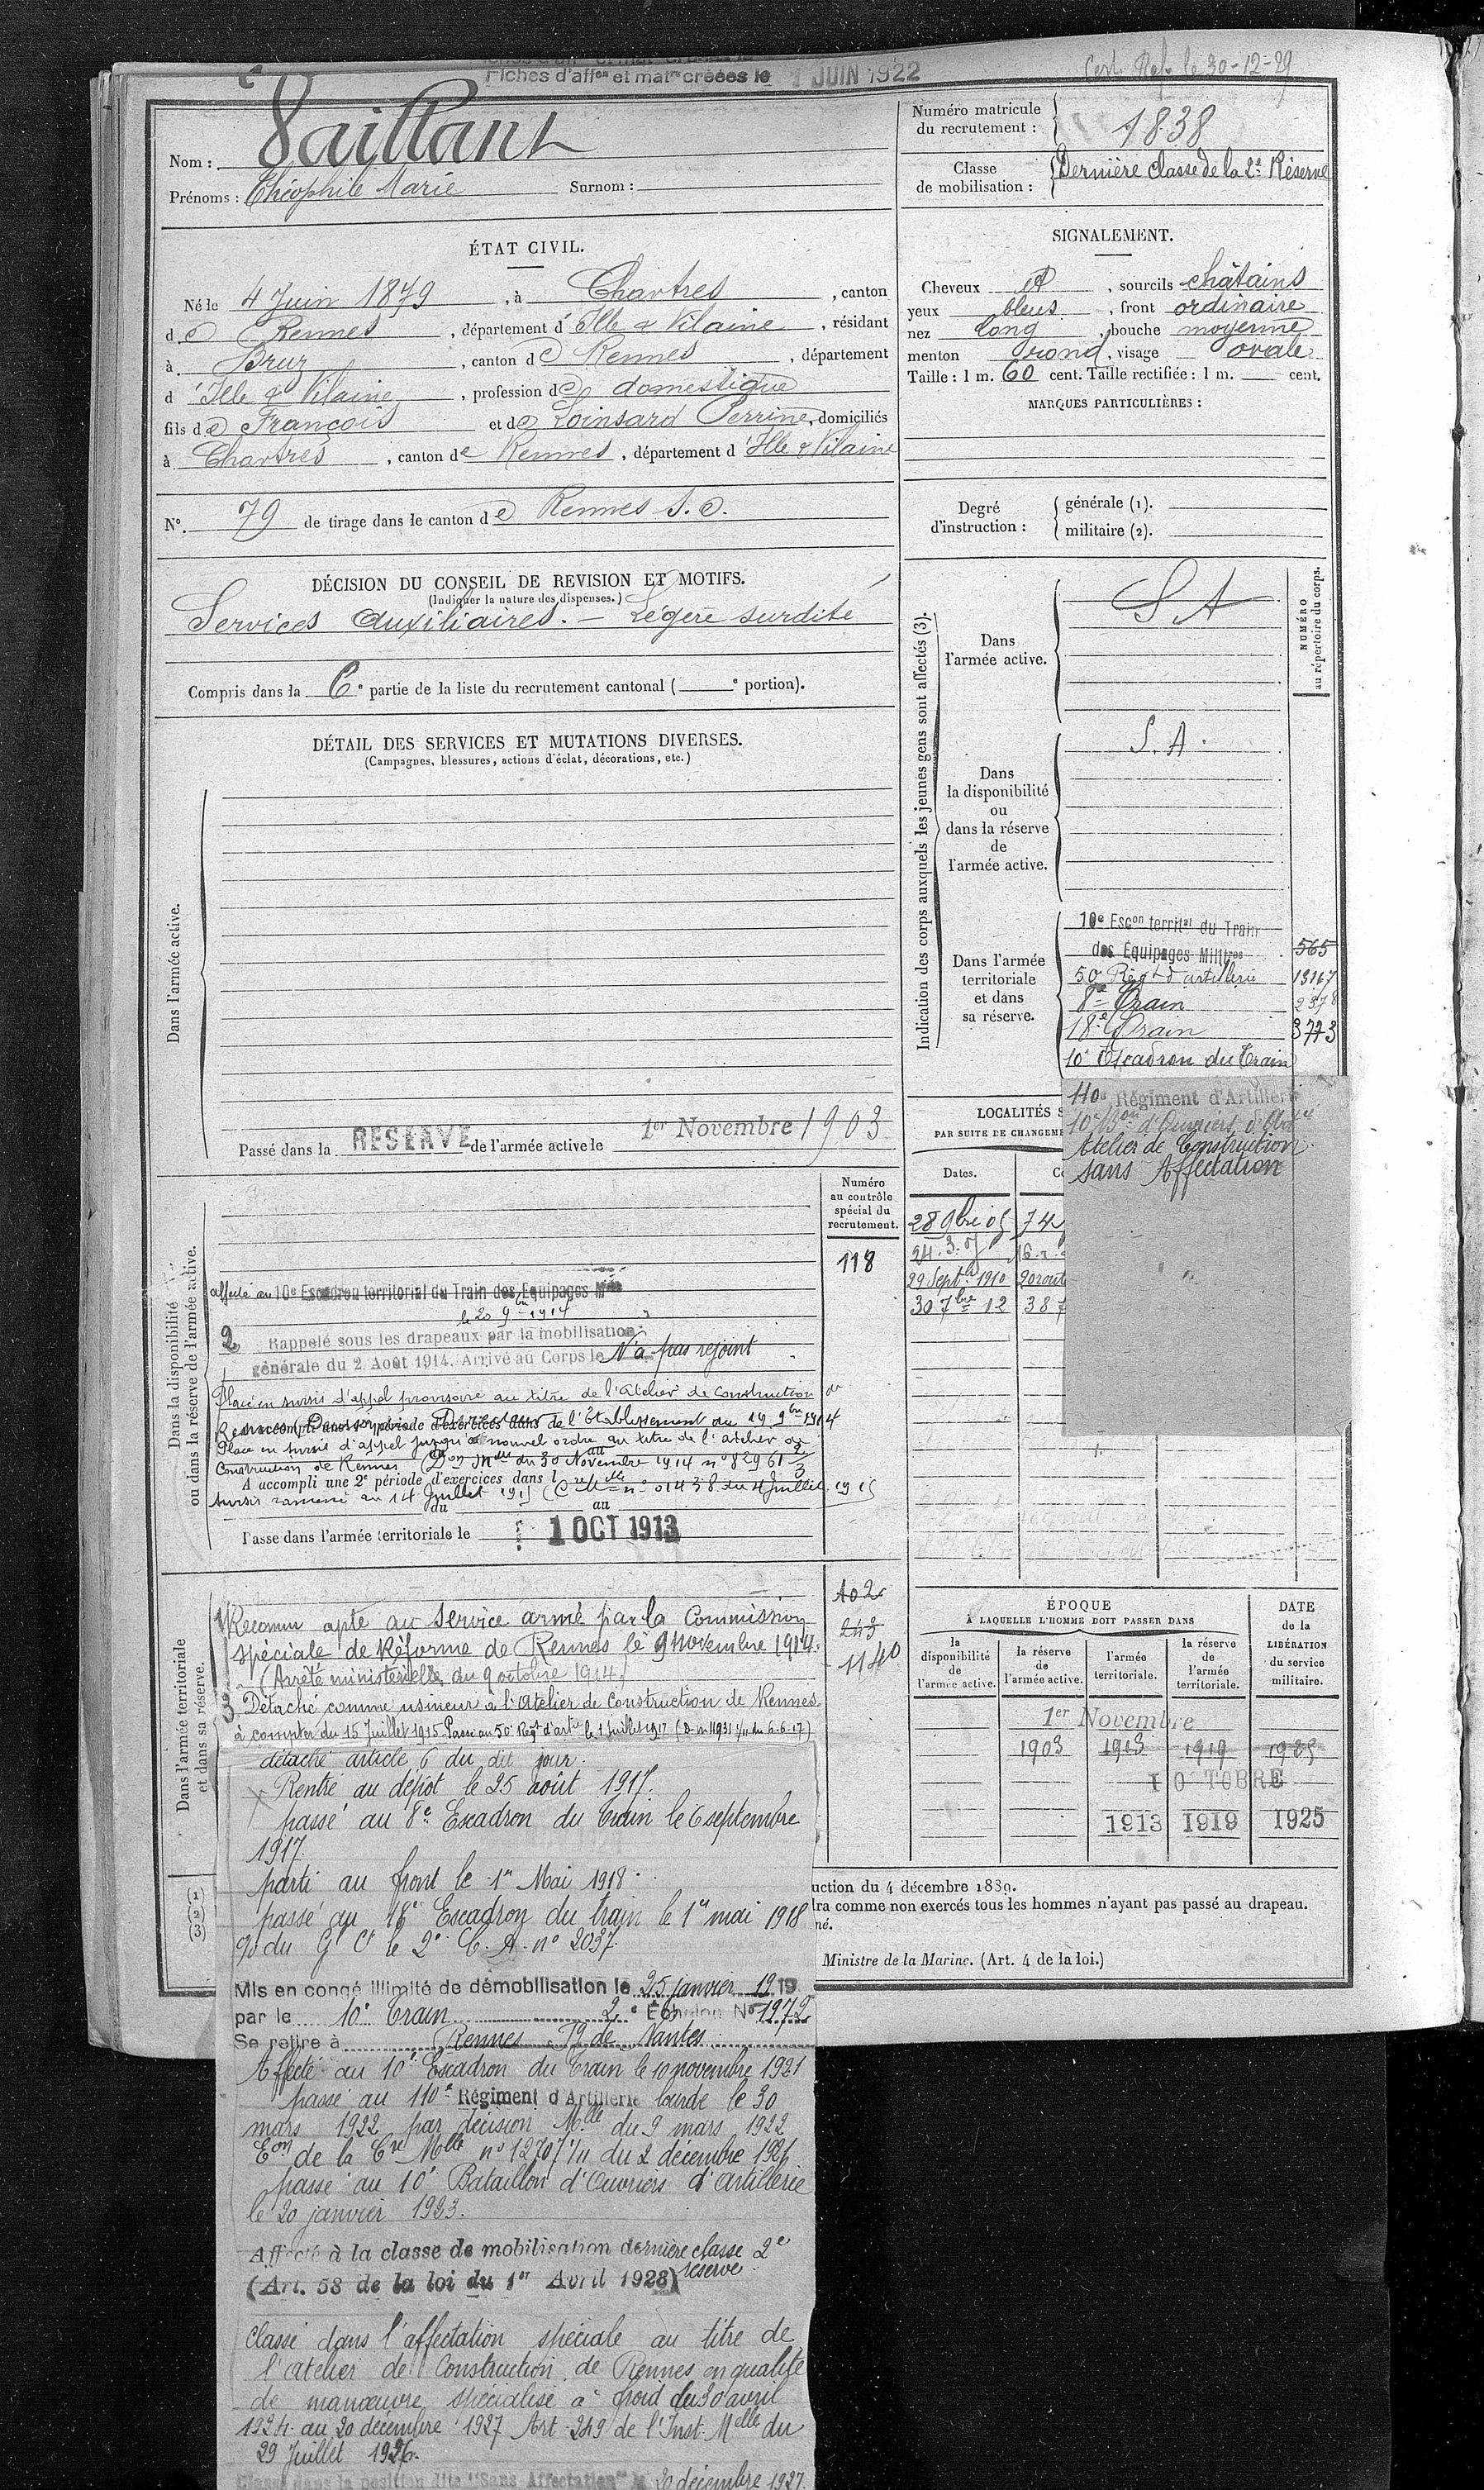 Fiches d'affon et matre créées le 1 JUIN 1922
Cert. Ref. le 30-12-29
Nom : Vaillant
Prénoms : Théophile Marie Surnom :
Numéro matricule du recrutement : 1838
Classe de mobilisation : Dernière classe de la 2e Réserve
ÉTAT CIVIL.
Né le 4 Juin 1879, à Chartres, canton
de Rennes, département d'Ille & Vilaine, résidant
à Bruz, canton de Rennes, département
d'Ille & Vilaine, profession de domestique
fils de François et de Loinsard Perrine, domiciliés
à Chartres, canton de Rennes, département d'Ille & Vilaine
N° 79 de tirage dans le canton de Rennes S.O.
SIGNALEMENT.
Cheveux et, sourcils châtains
yeux bleus, front ordinaire
nez long, bouche moyenne
menton rond, visage ovale
Taille : 1 m. 60 cent. Taille rectifiée : 1 m. cent.
MARQUES PARTICULIÈRES :
Degré d'instruction :
générale (1).
militaire (2).
DÉCISION DU CONSEIL DE REVISION ET MOTIFS.
(Indiquer la nature des dispenses.)
Services auxiliaires. – Légère surdité
Compris dans la 6e partie de la liste du recrutement cantonal ( e portion).
DÉTAIL DES SERVICES ET MUTATIONS DIVERSES.
(Campagnes, blessures, actions d'éclat, décorations, etc.)
Dans l'armée active.
Passé dans la RESERVE de l'armée active le 1er Novembre 1903
Indication des corps auxquels les jeunes gens sont affectés (3).
NUMÉRO au répertoire du corps.
Dans l'armée active.
S A
Dans la disponibilité ou dans la réserve de l'armée active.
S.A.
Dans l'armée territoriale et dans sa réserve.
10e Escon territal du Train
des Équipages Militres 565
50 Régt d'artillerie 13167
8e Train 2378
18e Train 3773
10e Escadron du Train
110e Régiment d'Artillerie
10e Bon d'Ouvriers d'Art
Atelier de Construction
sans Affectation
LOCALITÉS S
PAR SUITE DE CHANGEME
Dates.
28 9bre 05 74
24.3.07 16
29 Septbre 1910 20 rout
30 7bre 12 387
Dans la disponibilité ou dans la réserve de l'armée active.
Numéro au contrôle spécial du recrutement.
118
affecté au 10e Escadron territorial du Train des Equipages Mres
le 20 9bre 1914
2 Rappelé sous les drapeaux par la mobilisation
générale du 2 Août 1914. Arrivé au Corps le N'a pas rejoint
Placé en sursis d'appel provisoire au titre de l'Atelier de Construction de
Rennes de l'Établissement du 19 9bre 1914
Place en sursis d'appel jusqu'à nouvel ordre au titre de l'atelier de
Construction de Rennes (Don Mlle du 30 Novembre 1914 n° 82961 2/3
A accompli une 2e période d'exercices dans l
sursis ramené au 14 Juillet 1915 (Cre Mlle n° 01438 du 4 Juillet 1915
du au
Passé dans l'armée territoriale le 1 OCT 1913
Dans l'armée territoriale et dans sa réserve.
102
243
1140
1 Reconnu apte au Service armé par la Commission
spéciale de Réforme de Rennes le 9 novembre 1914.
(Arrêté ministérielle du 9 octobre 1914.)
3 Détaché comme usineur à l'Atelier de Construction de Rennes
à compter du 15 Juillet 1915. Passé au 50e Régt d'artie le 1 juillet 1917 (D. m 11931 1/11 du 6-6-17)
détaché article 6 du dit jour.
Rentré au dépôt le 25 août 1917.
passé au 8e Escadron du Train le 6 septembre
1917.
parti au front le 1er Mai 1918.
passé au 18e Escadron du train le 1er mai 1918
du le 2e C.A. n° 2037.
Mis en congé illimité de démobilisation le 25 janvier 1919
par le 10e Train 2e Échelon N° 1972
Se retire à Rennes de Nantes
Affecté au 10e Escadron du Train le 10 novembre 1921
passé au 110e Régiment d'Artillerie lourde le 30
mars 1922 par décision Mlle du 9 mars 1922
Eon de la Cre Mlle n° 12707 1/11 du 2 décembre 1921
passé au 10e Bataillon d'Ouvriers d'artillerie
le 20 janvier 1923.
Affecté à la classe de mobilisation dernière classe 2e réserve
(Art. 58 de la loi du 1er Avril 1928)
Classé dans l'affectation spéciale au titre de
l'atelier de Construction de Rennes en qualité
de manœuvre spécialisé à froid du 30 avril
1924 au 20 décembre 1927 Art 249 de l'Inst Melle du
29 Juillet 1926.
Classé dans la position dite "Sans Affectation" le 20 décembre 1927.
ÉPOQUE
À LAQUELLE L'HOMME DOIT PASSER DANS
la disponibilité de l'armée active.
la réserve de l'armée active.
l'armée territoriale.
la réserve de l'armée territoriale.
DATE de la LIBÉRATION du service militaire.
1er Novembre
1903 1913 1919 1925
1 OCTOBRE
1913 1919 1925
(1)
(2)
(3)
uction du 4 décembre 1889.
dra comme non exercés tous les hommes n'ayant pas passé au drapeau.
né.
Ministre de la Marine. (Art. 4 de la loi.)